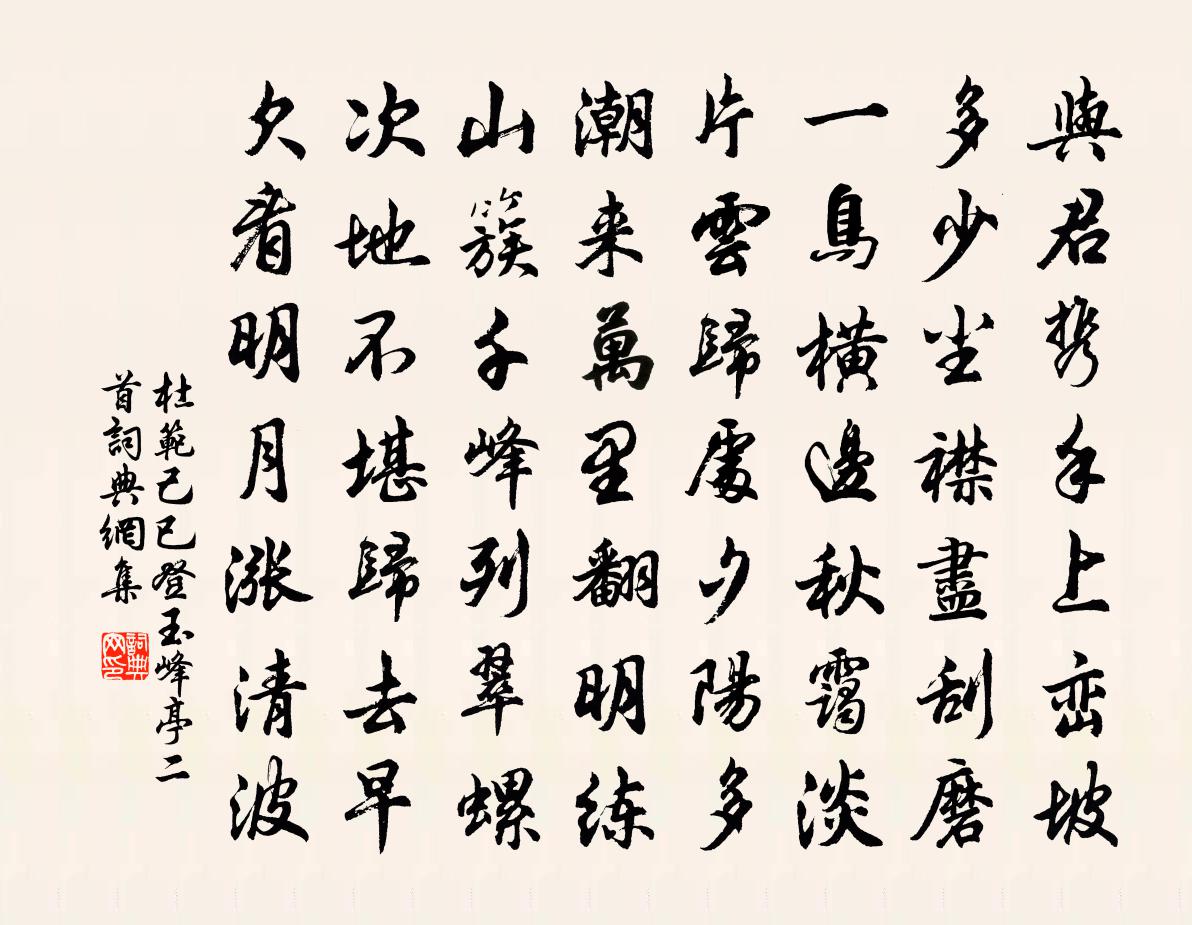 與君携手上巒坡
多少尘襟盡刮磨
一鳥橫邊秋靄淡
片雲歸處夕陽多
潮来萬里翻明练
山簇千峰列翠螺
次地不堪歸去早
欠看明月漲清波
杜範己巳登玉峰亭二
首詞典網集
詞典网印